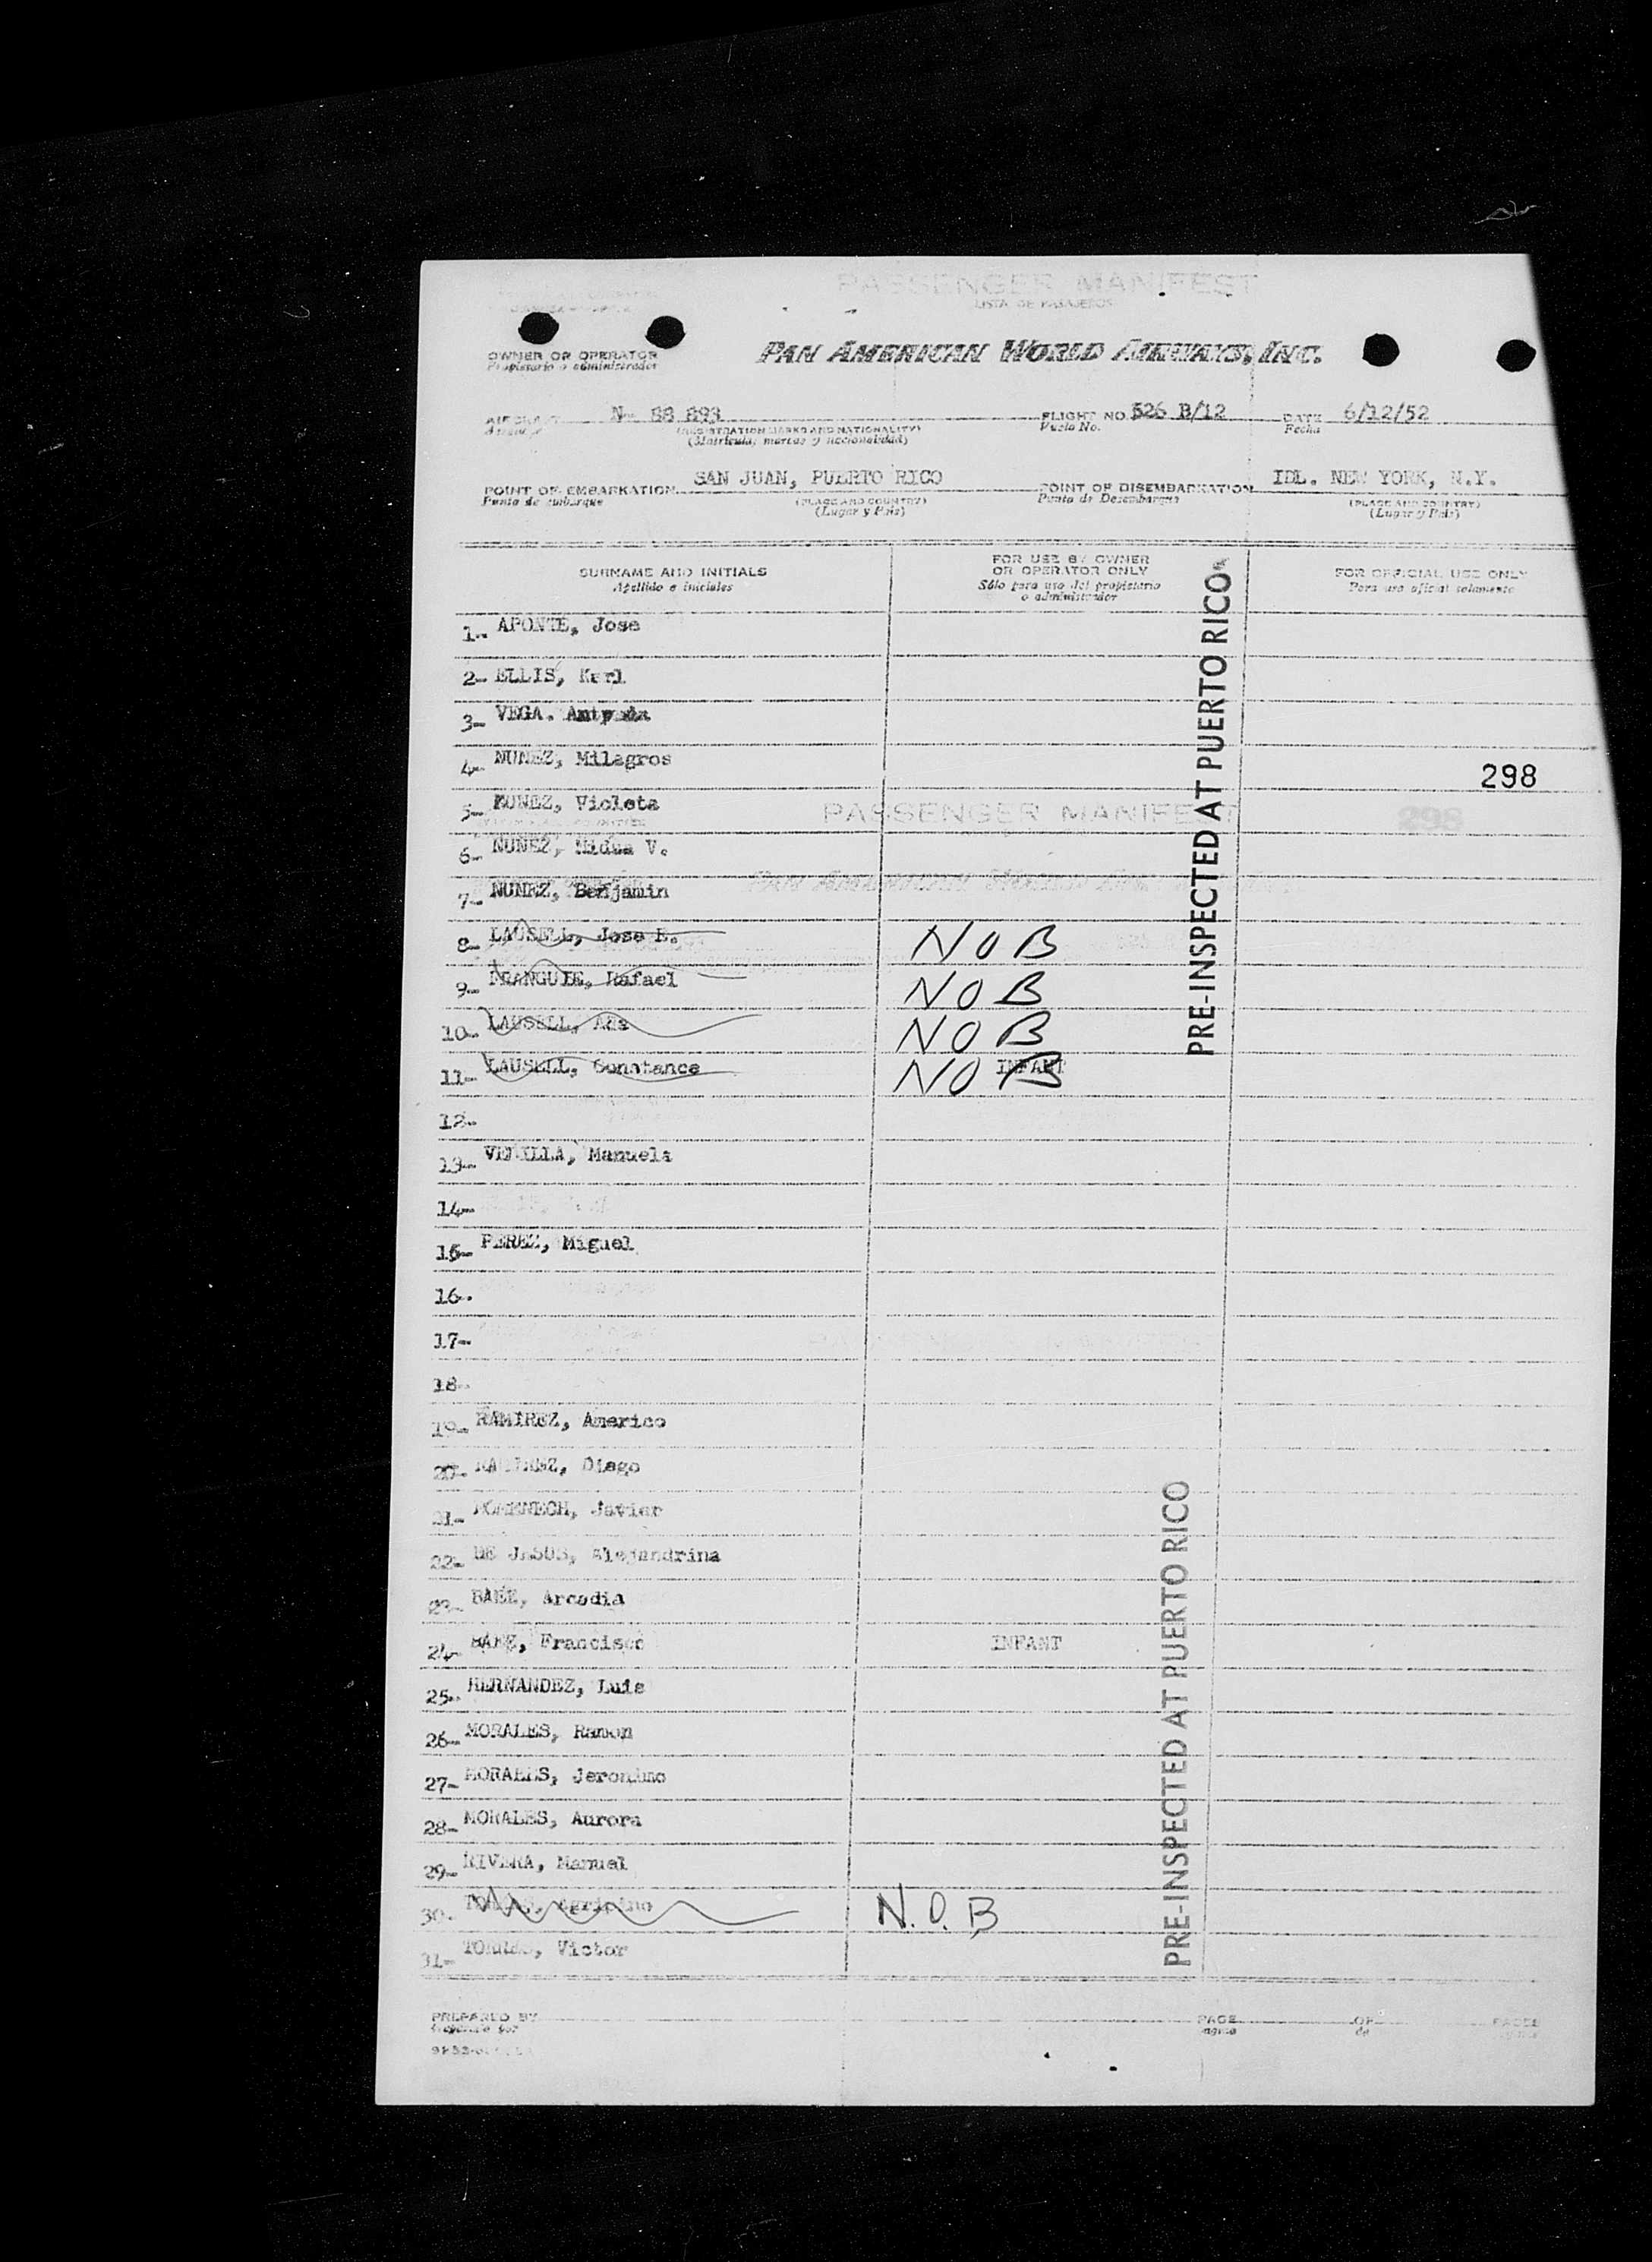 PASSENGER MANIFEST
LISTA DE PASAJEROS
OWNER OR OPERATOR
Propietario o administrador
PAN AMERICAN WORLD AIRWAYS, INC.
AIRCRAFT N- 88 893 FLIGHT NO. 526 B/12 DATE 6/12/52
(REGISTRATION MARKS AND NATIONALITY) Vuelo No. Fecha
(Matricula, marcas y nacionalidad)
POINT OF EMBARKATION SAN JUAN, PUERTO RICO POINT OF DISEMBARKATION IDL. NEW YORK, N.Y.
Punto de embarque (PLACE AND COUNTRY) Punto de Desembarque (PLACE AND COUNTRY)
(Lugar y Pais) (Lugar y Pais)
SURNAME AND INITIALS
Apellido e iniciales
FOR USE BY OWNER
OR OPERATOR ONLY
Sólo para uso del propietario
o administrador
FOR OFFICIAL USE ONLY
Para uso oficial solamente
PRE-INSPECTED AT PUERTO RICO
1- APONTE, Jose
2- ELLIS, Karl
3- VEGA.
4- NUNEZ, Milagros
298
5- NUNEZ, Violeta
PASSENGER MANIFEST
298
6- NUNEZ, V.
7- NUNEZ, Benjamin
PAN AMERICAN WORLD
8- LAUSELL, Jose E. NOB
9- Rafael NOB
10- LAUSELL, Ana NOB
11- LAUSELL, Constance NOB INFANT
12-
13- Manuela
14-
15- PEREZ, Miguel
16-
17-
18-
19- RAMIREZ, Americo
20- RAMIREZ, Diego
21- DOMENECH, Javier
22- DE JESUS, Alejandrina
23- BAEZ, Arcadia
24- BAEZ, Francisco INFANT
25- HERNANDEZ, Luis
26- MORALES, Ramon
27- MORALES, Jeronimo
28- MORALES, Aurora
29- RIVERA, Manuel
30- Agripino N.O.B
31- TORRES, Victor
PRE-INSPECTED AT PUERTO RICO
PREPARED BY PAGE OF PAGES